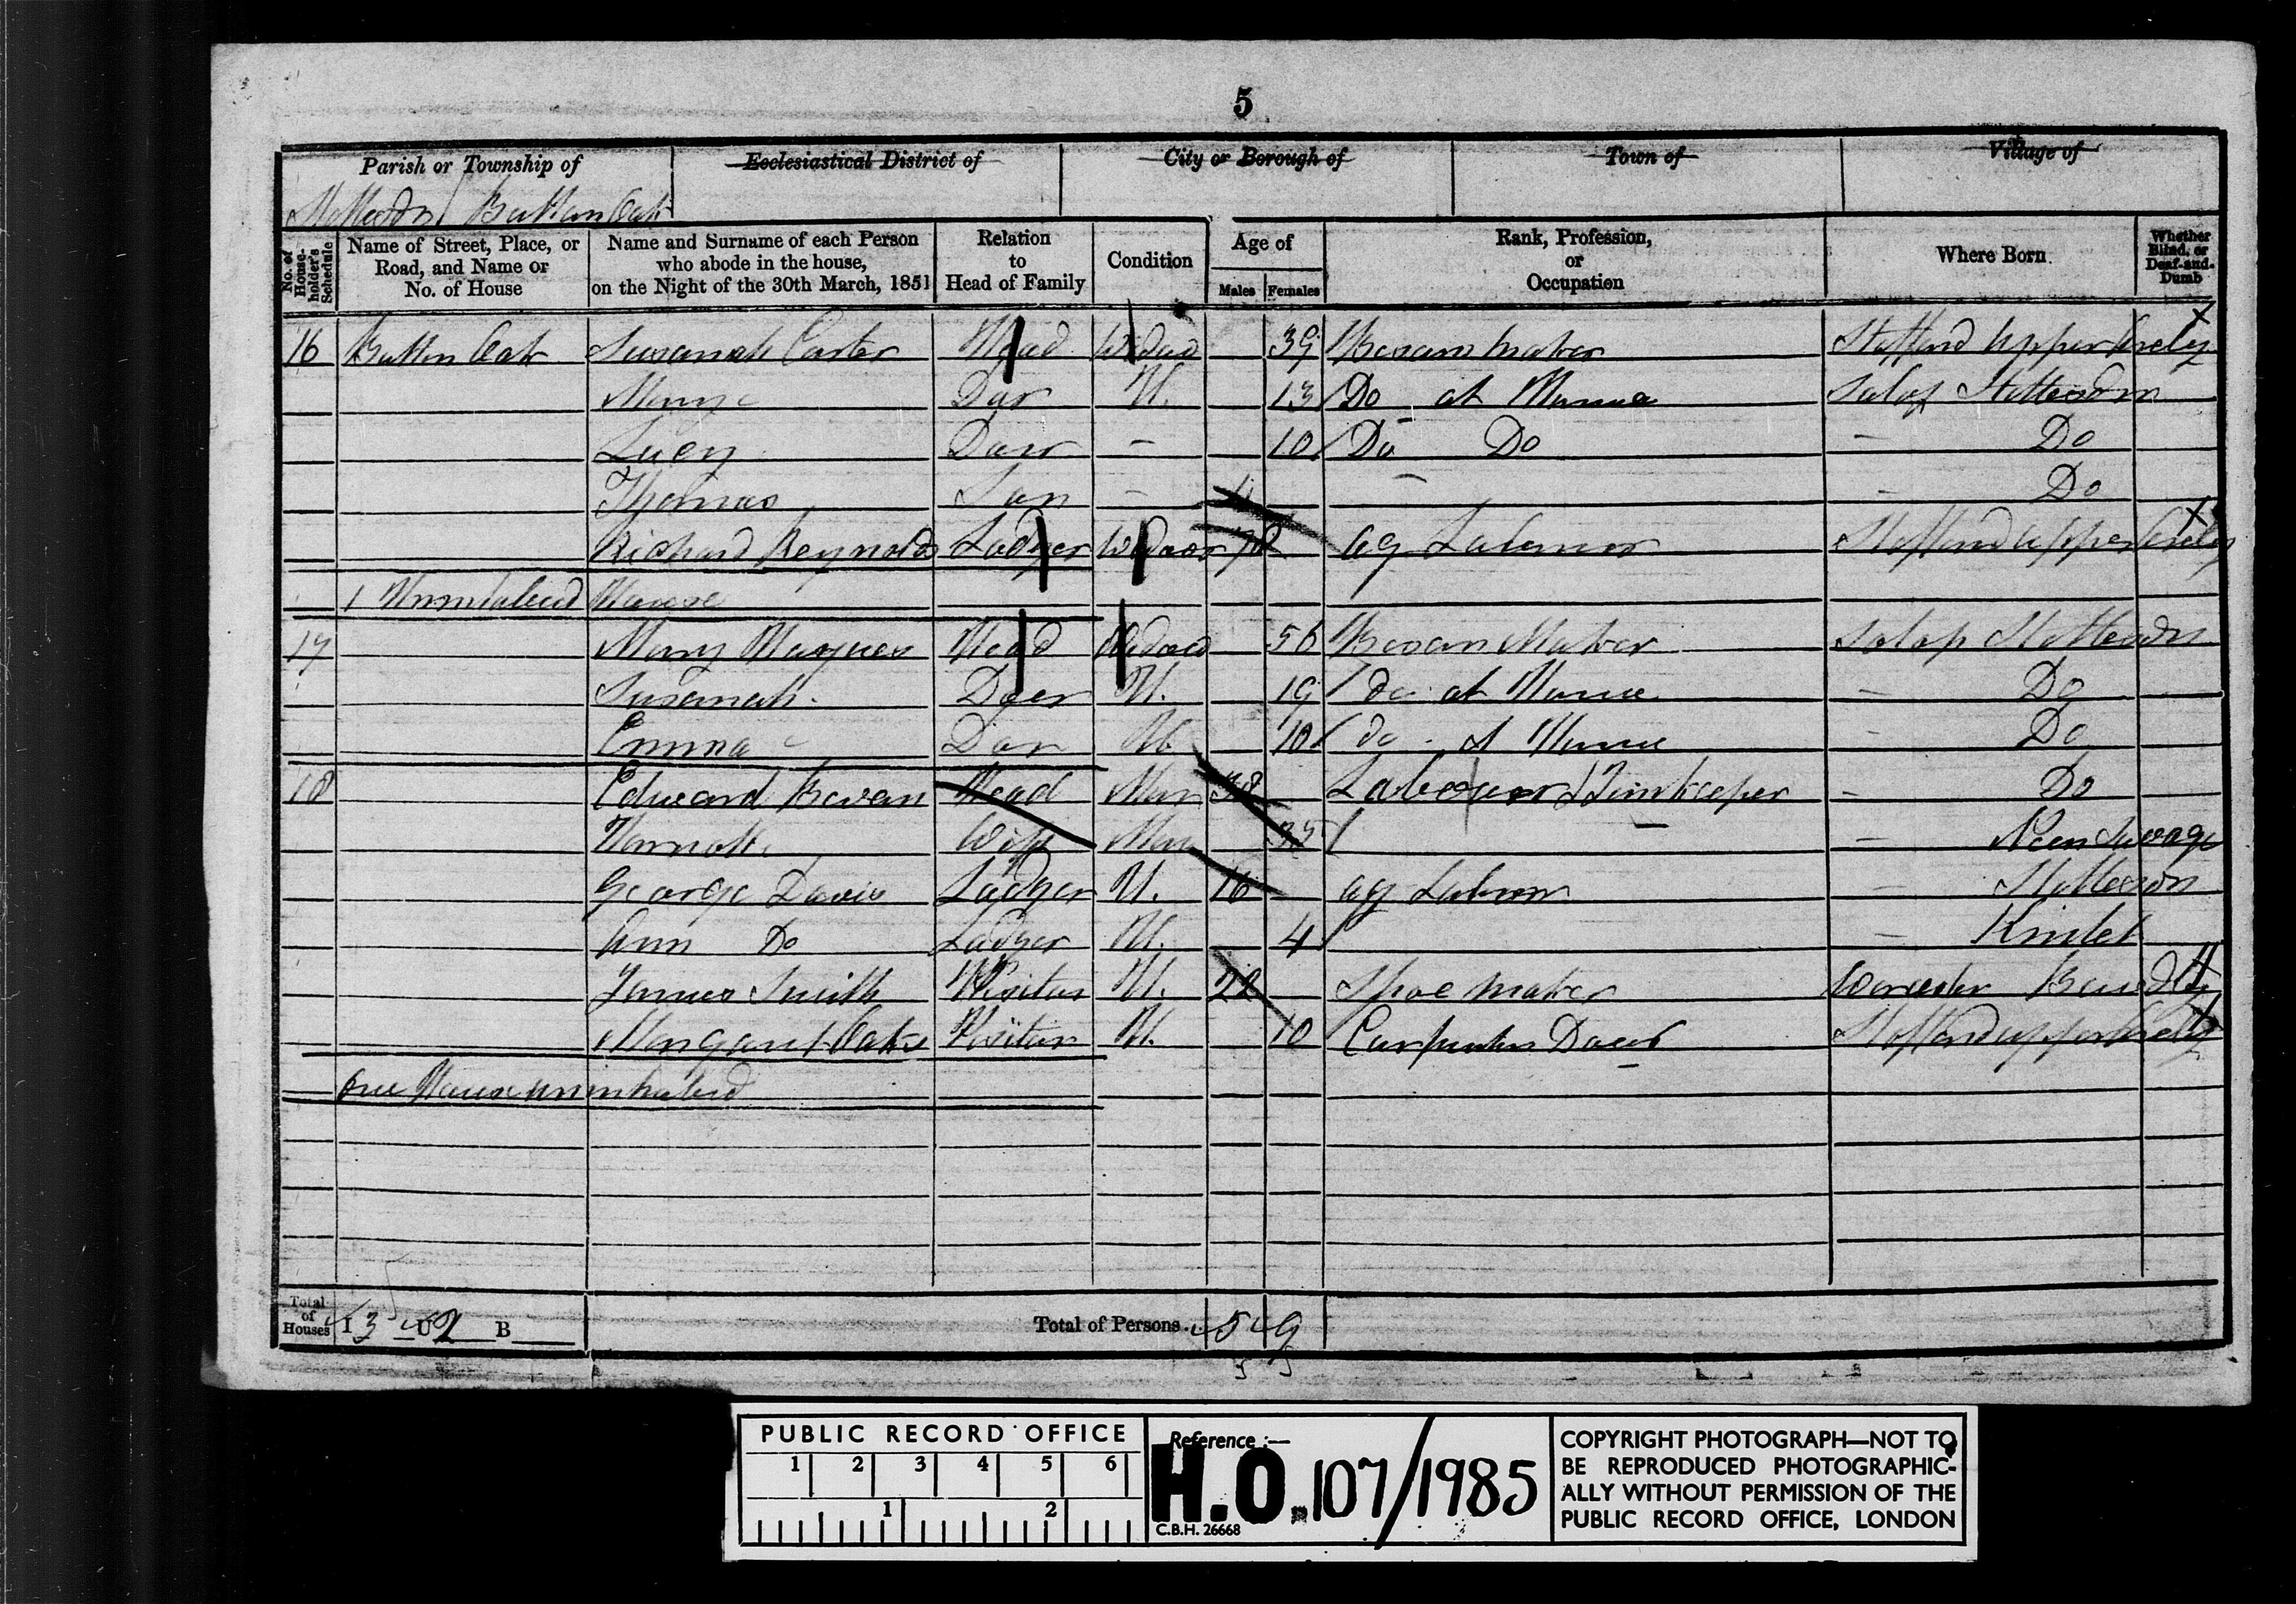 5
Parish or Township of Ecclesiastical District of City or Borough of Town of Village of
Stottesdon Button Oak
No. of House-holder's Schedule Name of Street, Place, or Road, and Name or No. of House Name and Surname of each Person who abode in the house, on the Night of the 30th March, 1851 Relation to Head of Family Condition Age of Males Females Rank, Profession, or Occupation Where Born Whether Blind, or Deaf-and-Dumb
16 Button Oak Susanah Carter Head Widow 39 Besom Maker Stafford Upper Areley
Mary Dar U. 13 Do at Home Salop Stottesdon
Lucy Daur - 10 Do Do - Do
Thomas Son - - - Do
Richard Reynolds Lodger Widoor Ag Labourer Stafford Upper Areley
1 Uninhabeid House
17 Mary Head Widow 56 Besom Maker Salop Stottesdon
Susanah Daer U. 19 do at Home - Do
Emma Dar U. 10 do at Home - Do
18 Edward Bevan Head Mar 38 Labourer - Do
Wife Mar 35 - - Neen Savage
George Davis Lodger U. 16 Ag Labour - Stottesdon
Ann Do Lodger U. 4 - Kinlet
James Smith Visitor U. 22 Shoe Maker Worcester Bewdly
Margaret Oakes Visitor U. 10 Carpenters Daur Stafford Upper Areley
One House uninhabeid
Total of Houses I 3 U 2 B Total of Persons 5 9
PUBLIC RECORD OFFICE
1 2 3 4 5 6
1 2
Reference :—
H.O. 107/1985
C.B.H. 26668
COPYRIGHT PHOTOGRAPH—NOT TO
BE REPRODUCED PHOTOGRAPHIC-
ALLY WITHOUT PERMISSION OF THE
PUBLIC RECORD OFFICE, LONDON